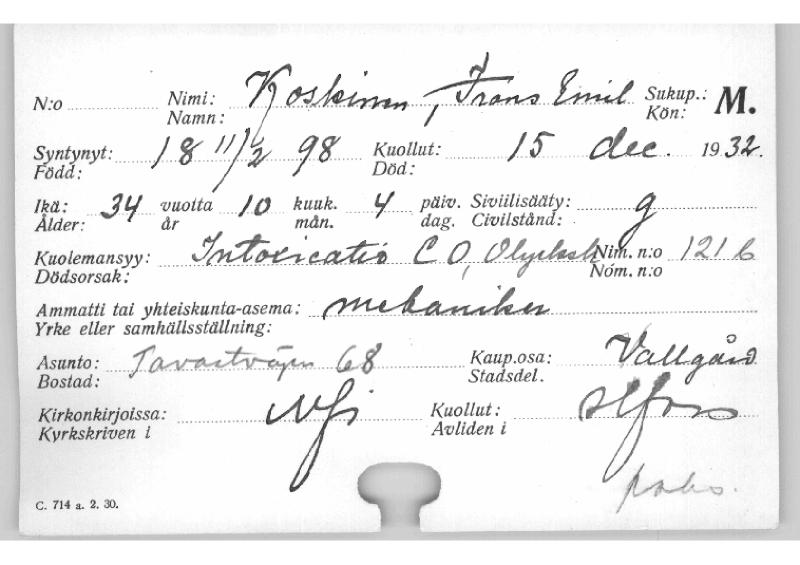 N:o Nimi: Koskinen, Frans Emil Sukup.: M.
Namn: Kön:
Syntynyt: 18 11/2 98 Kuollut: 15 dec. 1932.
Född: Död:
Ikä: 34 vuotta 10 kuuk. 4 päiv. Siviilisääty: g
Ålder: år mån. dag. Civilstånd:
Kuolemansyy: Intoxicatio CO, Olycksh Nim. n:o 121 b
Dödsorsak: Nom. n:o
Ammatti tai yhteiskunta-asema: mekaniker
Yrke eller samhällsställning:
Asunto: Tavastvägen 68 Kaup.osa: Vallgård
Bostad: Stadsdel.
Kirkonkirjoissa: Kuollut: Hfors
Kyrkskriven i Avliden i
C. 714 a. 2. 30.